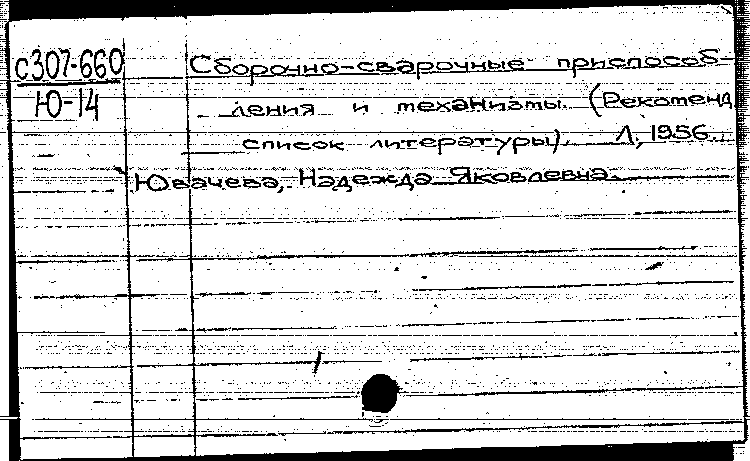 с307-660
Ю-14
Сборочно-сварочные приспособ-
ления и механизмы. (Рекоменд.
список литературы). Л, 1956.
Ювачева, Надежда Яковлевна.